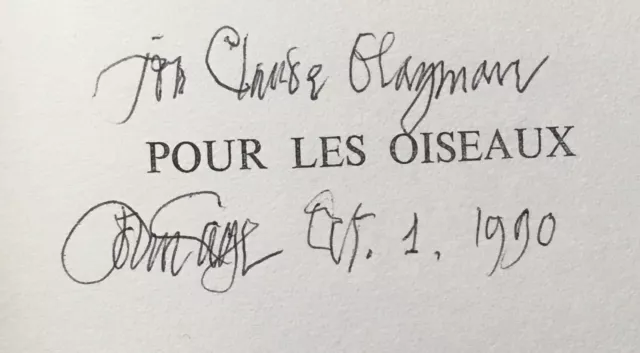 for Claude Glayman
POUR LES OISEAUX
John Cage Oct. 1, 1990